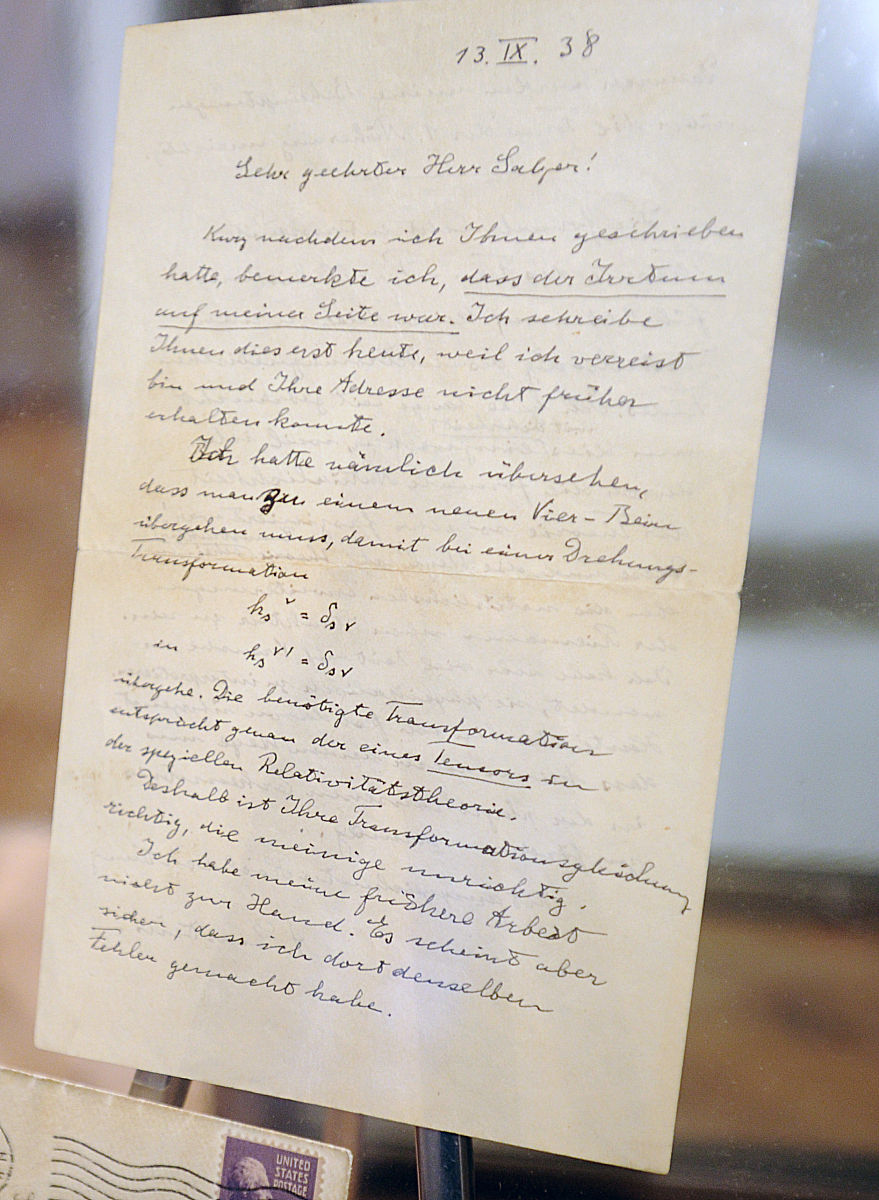 13. IX. 38
Sehr geehrter Herr Salzer!
Kurz nachdem ich Ihnen geschrieben
hatte, bemerkte ich, dass der Irrtum
auf meiner Seite war. Ich schreibe
Ihnen dies erst heute, weil ich verreist
bin und Ihre Adresse nicht früher
erhalten konnte.
Ich hatte nämlich übersehen,
dass man zu einem neuen Vier-Bein
übergehen muss, damit bei einer Drehungs-
Transformation
hₛᵛ = δₛᵥ
in
hₛᵛ' = δₛᵥ
übergehe. Die benötigte Transformation
entspricht genau der eines Tensors in
der speziellen Relativitätstheorie.
Deshalb ist Ihre Transformationsgleichung
richtig, die meinige unrichtig.
Ich habe meine frühere Arbeit
nicht zur Hand. Es scheint aber
sicher, dass ich dort denselben
Fehler gemacht habe.
UNITED
STATES
POSTAGE